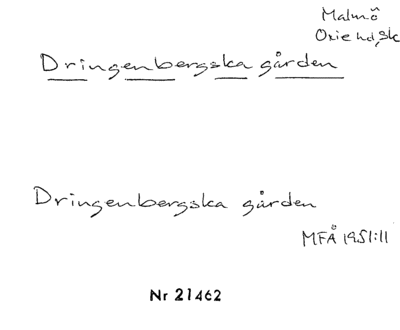 Malmö
Oxie hd, Sk
Dringenbergska gården
Dringenbergska gården
MFÅ 1951:11
Nr 21462